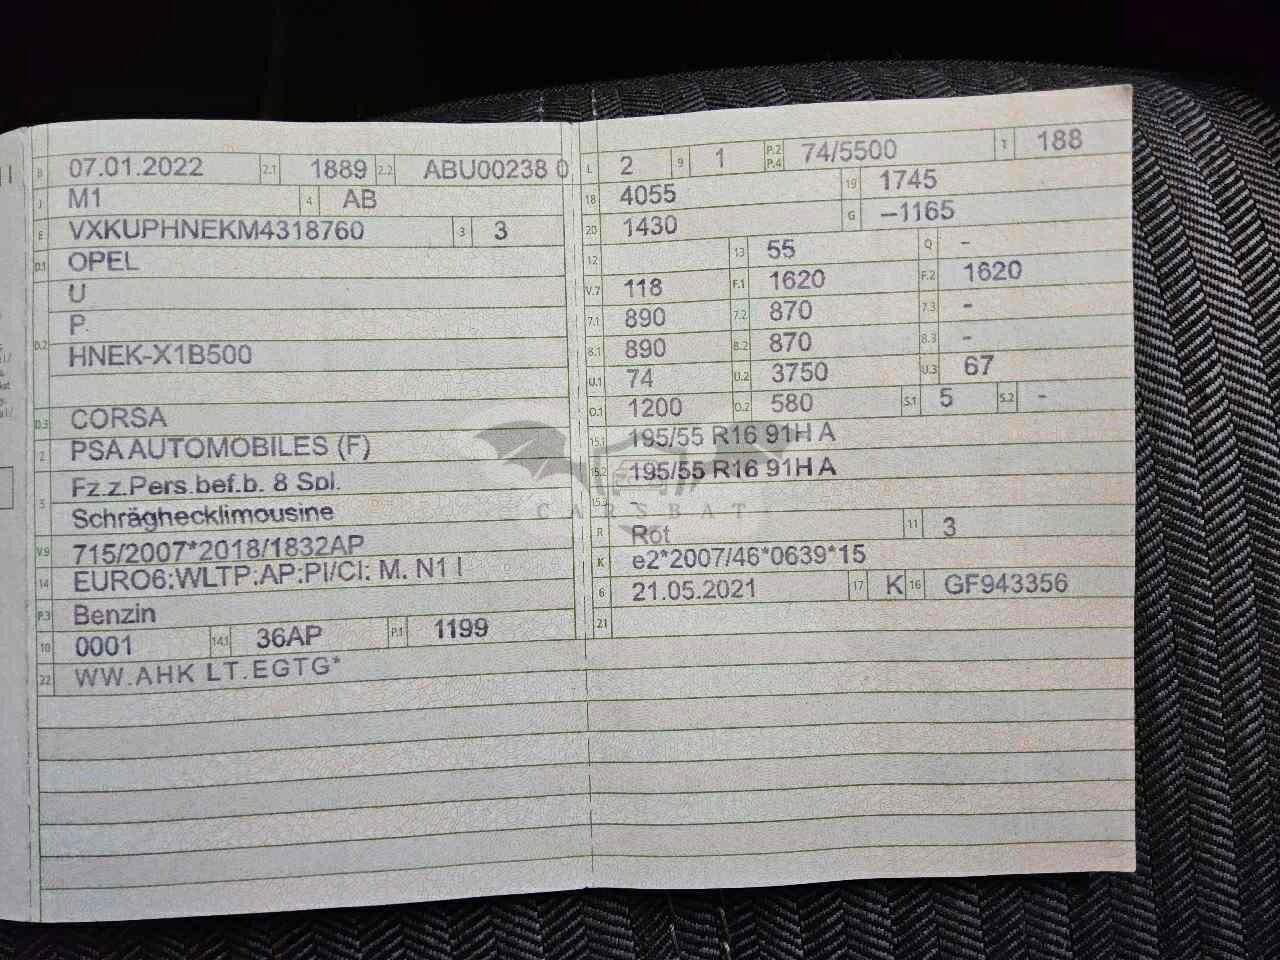 B 07.01.2022 2.1 1889 2.2 ABU00238 0
J M1 4 AB
E VXKUPHNEKM4318760 3 3
D.1 OPEL
U
D.2 P
HNEK-X1B500
D.3 CORSA
2 PSA AUTOMOBILES (F)
5 Fz.z.Pers.bef.b. 8 Spl.
Schräghecklimousine
V.9 715/2007*2018/1832AP
14 EURO6;WLTP;AP;PI/CI; M, N1 I
P.3 Benzin
10 0001 14.1 36AP P.1 1199
22 WW.AHK LT.EGTG*
L 2 9 1 P.2 P.4 74/5500 T 188
18 4055 19 1745
20 1430 G –1165
12 13 55 Q -
V.7 118 F.1 1620 F.2 1620
7.1 890 7.2 870 7.3 -
8.1 890 8.2 870 8.3 -
U.1 74 U.2 3750 U.3 67
O.1 1200 O.2 580 S.1 5 S.2 -
15.1 195/55 R16 91H A
15.2 195/55 R16 91H A
15.3 -
CARSBAT
R Rot 11 3
K e2*2007/46*0639*15
6 21.05.2021 17 K 16 GF943356
21